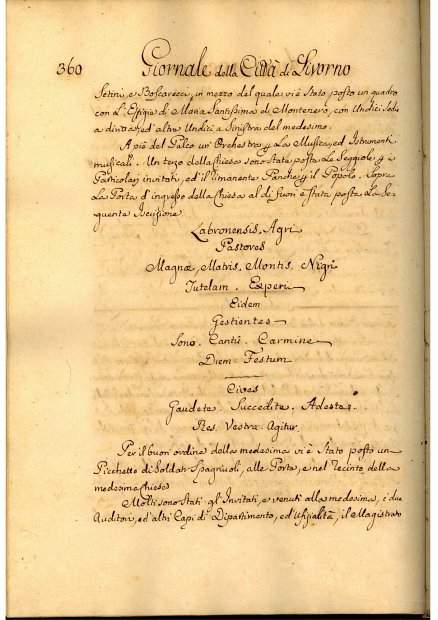 360 Giornale della Città di Livorno
Setini, e Boscarecci, in mezzo del quale vi è stato posto un quadro
con L'Effigia di Maria Santissima di Montenero, con Undici Sedie
a diritta, ed altre Undici a Sinistra del medesimo.
A piè del Palco un' Orchestra p La Musica, ed Istrumenti
musicali. Un terzo della Chiesa sono state poste Le Seggiole, p i
Particolari invitati, ed il rimanente Panche, p il Popolo. Sopra
La Porta d'ingresso della Chiesa al di fuori è stata posta La Se-
guente Iscrizione
Labronensis. Agri
Pastores
Magnæ. Matris. Montis. Nigri
Tutelam. Experti
Eidem
Gestientes
Sono. Cantû. Carmine
Diem. Festum
Cives
Gaudete. Succedite. Adeste.
Res. Vestra. Agitur.
Per il buon ordine della medesima vi è stato posto un
Picchetto di Soldati Spagnuoli, alle Porte, e nel recinto della
medesima Chiesa
Molti sono stati gl' Invitati, e venuti alla medesima, i due
Auditori, ed altri Capi di Dipartimento, ed Ufizialità, il Magistrato